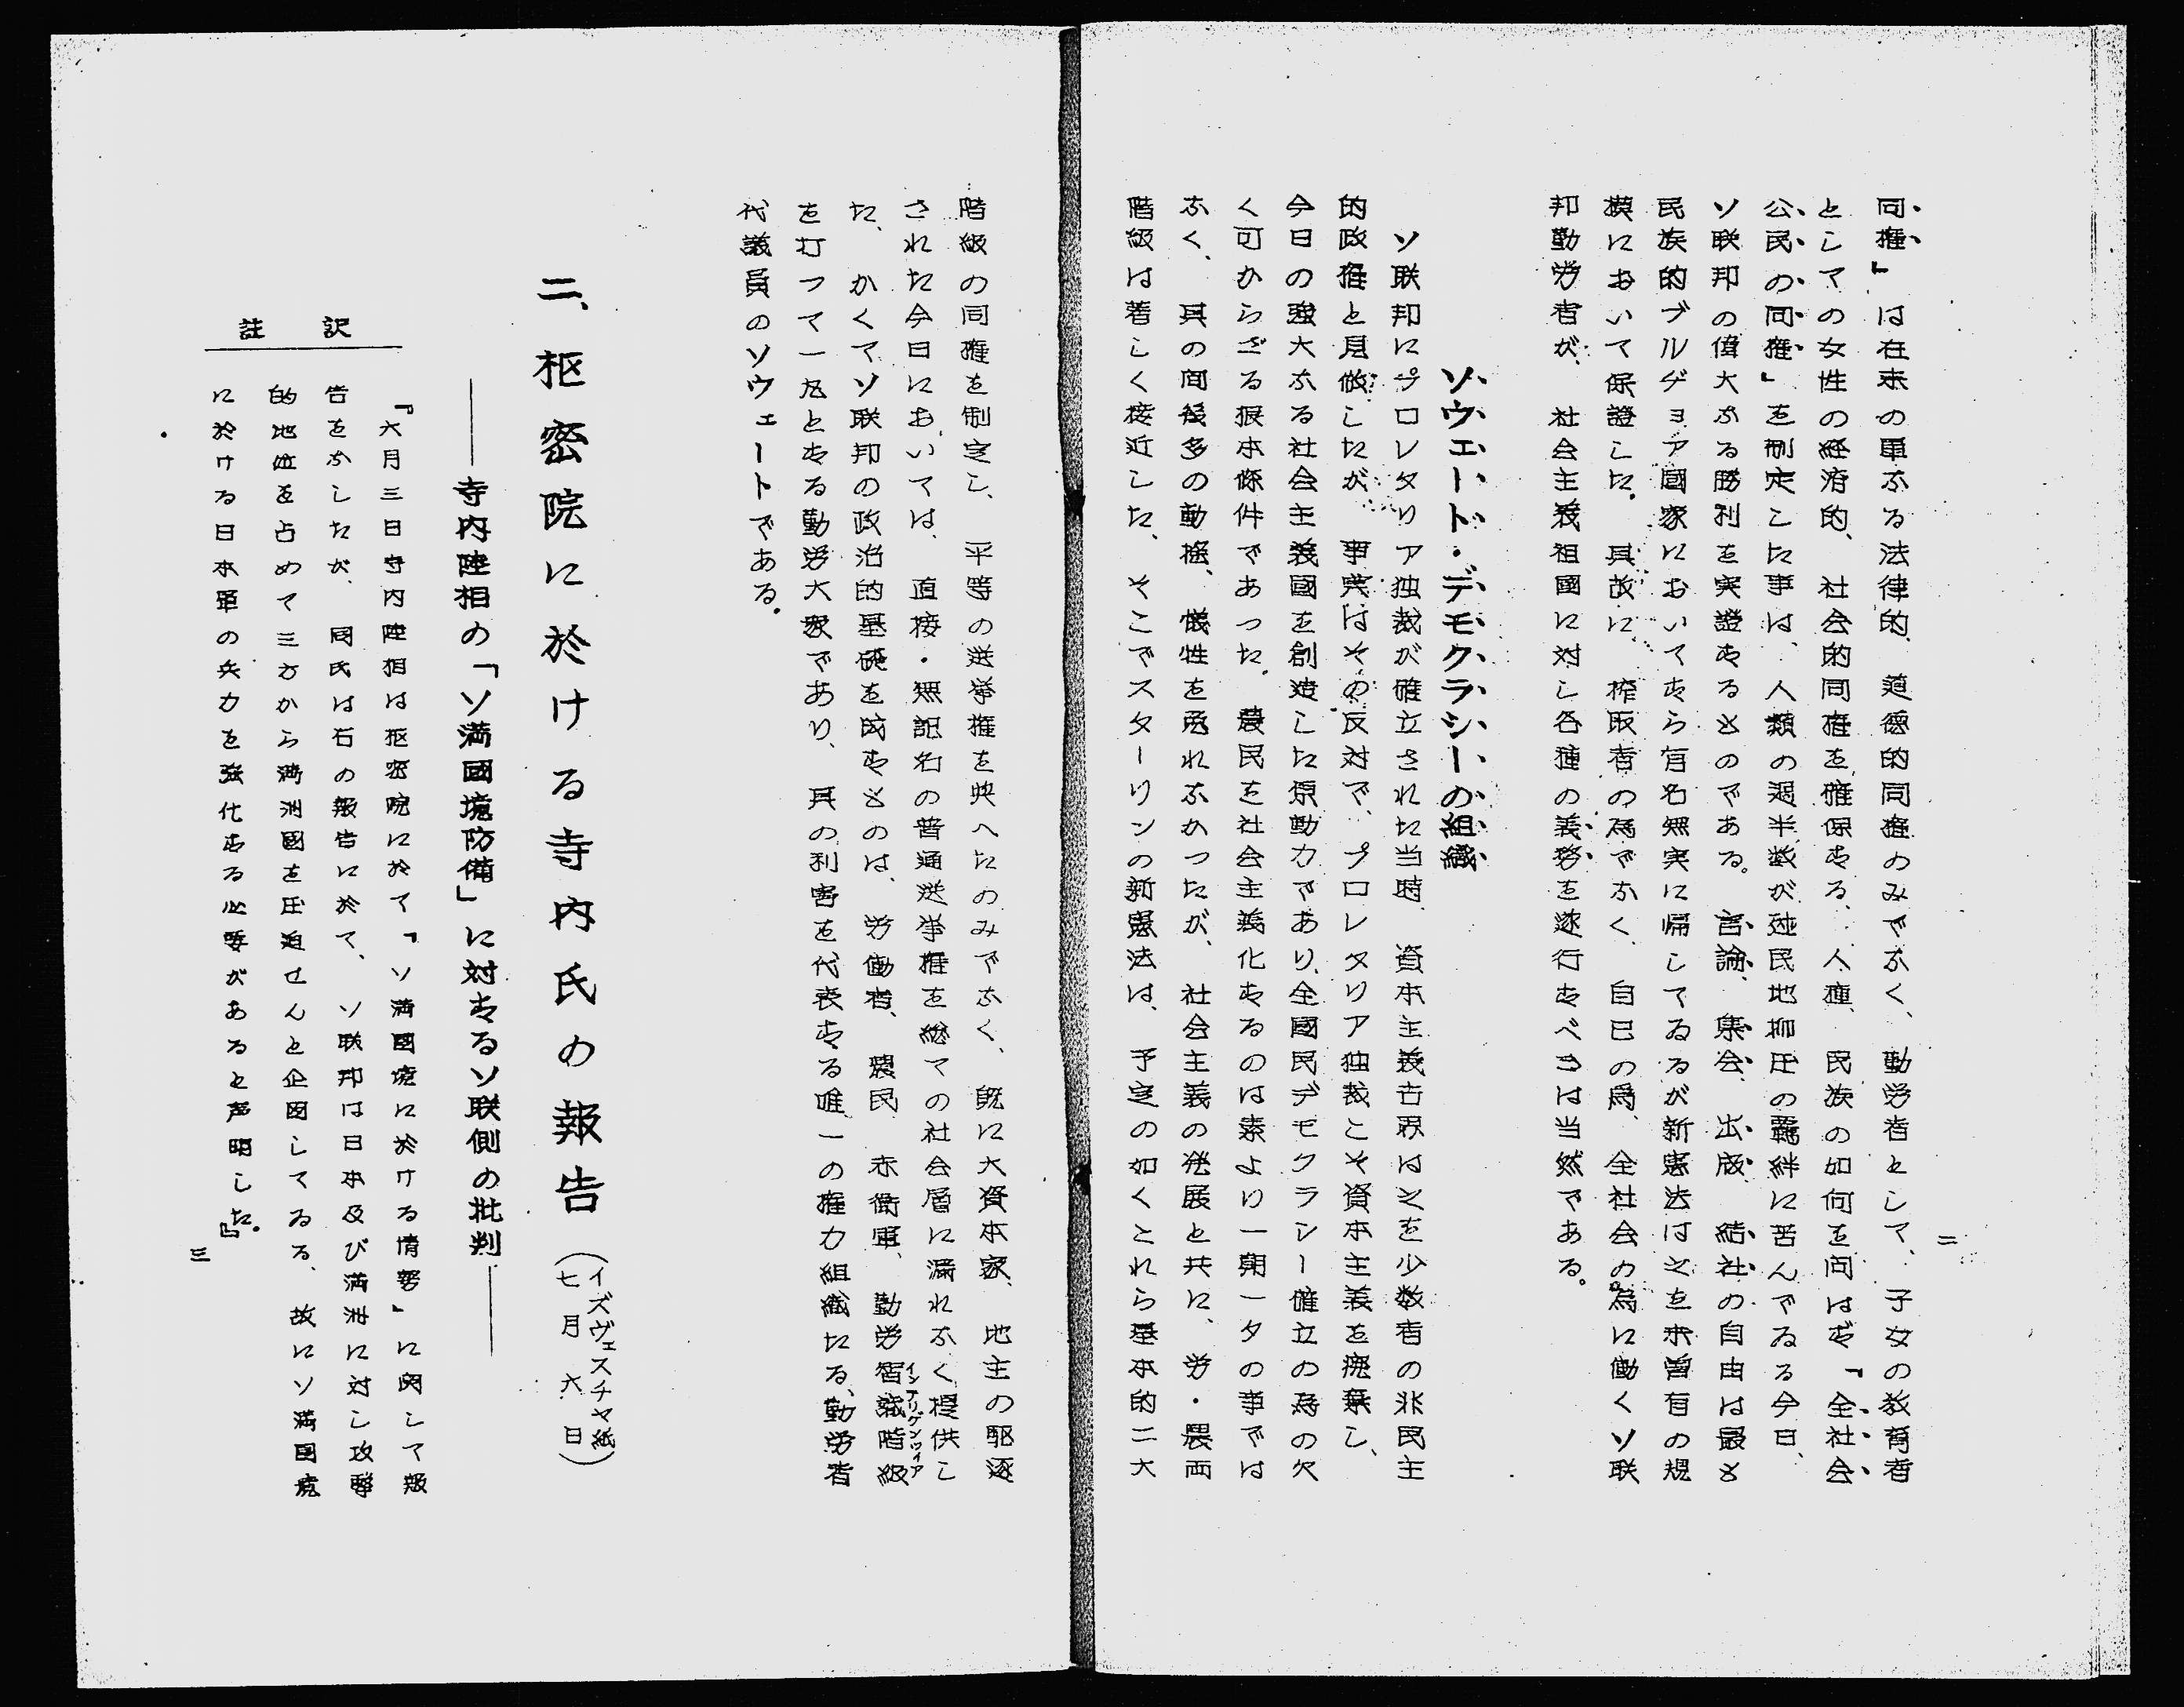 二
同権』は在来の単なる法律的、道徳的同権のみでなく、勤労者として、子女の教育者
としての女性の経済的、社会的同権を確保する、人種、民族の如何を問はず『全社会
公民の同権』を制定した事は、人類の過半数が殖民地抑圧の羈絆に苦んでゐる今日、
ソ联邦の偉大なる勝利を実證するものである。言論、集会、出版、結社の自由は最も
民族的ブルヂョア國家においてすら有名無実に帰してゐるが新憲法は之を未曽有の規
模において保證した。其故に、搾取者の為でなく、自已の為、全社会の為に働くソ联
邦勤労者が、社会主義祖國に対し各種の義務を遂行すべきは当然である。
ソウエート・デモクラシーの組織
ソ联邦にプロレタリア独裁が確立された当時、資本主義世界は之を少数者の非民主
的政権と見做したが、事実はその反対で、プロレタリア独裁こそ資本主義を廃棄し、
今日の強大なる社会主義國を創造した原動力であり、全國民デモクラシー確立の為の欠
く可からざる根本條件であつた。農民を社会主義化するのは素より一朝一夕の事では
なく、其の間幾多の動揺、犠牲を免れなかつたが、社会主義の発展と共に、労・農両
階級は著しく接近した、そこでスターリンの新憲法は、予定の如くこれら基本的二大
階級の同権を制定し、平等の選挙権を与へたのみでなく、既に大資本家、地主の駆逐
された今日においては、直接・無記名の普通選挙権を総ての社会層に漏れなく提供し
た、かくてソ联邦の政治的基礎を成すものは、労働者、農民、赤衛軍、勤労智識階級
を打つて一丸とする勤労大衆であり、其の利害を代表する唯一の権力組織たる、勤労者
代議員のソウェートである。
二、枢密院に於ける寺内氏の報告（イズヴェスチヤ紙 七月六日）
――寺内陸相の「ソ満國境防備」に対するソ联側の批判――
訳註
『六月三日寺内陸相は枢密院に於て『ソ満國境に於ける情勢』に関して報
告をなしたが、同氏は右の報告に於て、ソ联邦は日本及び満洲に対し攻撃
的地位を占めて三方から満洲國を圧迫せんと企図してゐる、故にソ満国境
に於ける日本軍の兵力を強化する必要があると声明した。』
三